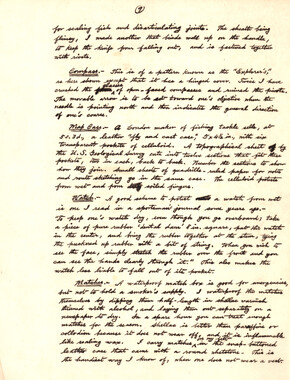 (7)
for scaling fish and disarticulating joints. The sheath being
flimsy, I made another that binds well up on the handle,
to keep the knife from falling out, and is fastened together
with rivets.
Compass.- This is of a pattern known as the "Explorer's,"
as here shown except that it has a hinged cover. Twice I have
crushed the glasses of open-faced compasses and ruined the pivots.
The movable arrow is to be set toward one's objective when the
needle is pointing north and then indicate the general direction
of one's course.
Map Case.- A London maker of fishing tackle sells, at
a leather "fly and cast case," 5x4½ in, with six
transparent pockets of celluloid. A topographical sheet of
the U.S. Geological Survey is cut into twelve sections that fit these
pockets, two in each, back to back. Number the sections to show
how they join. Small sheets of quadrille-ruled paper for notes
and route sketching go in the same case. The celluloid protects
from wet and from soiled fingers.
Watch.- A good scheme to protect a watch from wet
is one I read in a sportsmen's journal some years ago.
"To keep one's watch dry, even though you go overboard: take
a piece of pure rubber 'dental dam' 8 in. square; put the watch
in the center, and bring the rubber together at the stem, tying
the puckered up rubber with a bit of string. When you wish to
see the face, simply stretch the rubber over the front and you
can see the hands clearly through it." This also makes the
watch less liable to fall out of its pocket.
Matches.- A waterproof matchbox is good for emergencies,
but not to hold a smoker's supply. I waterproof the matches
themselves by dipping them half-length in shellac varnish
thinned with alcohol, and laying them out separately on a
newspaper to dry. In a spare hour you can treat enough
matches for the season. Shellac is better than paraffin or
collodion because it does not wear off, and it is inflammable
like sealing wax. I carry matches in the snap-buttoned
leather case that came with a round skeleton. This is
the handiest way I know of, when one does not wear a vest.